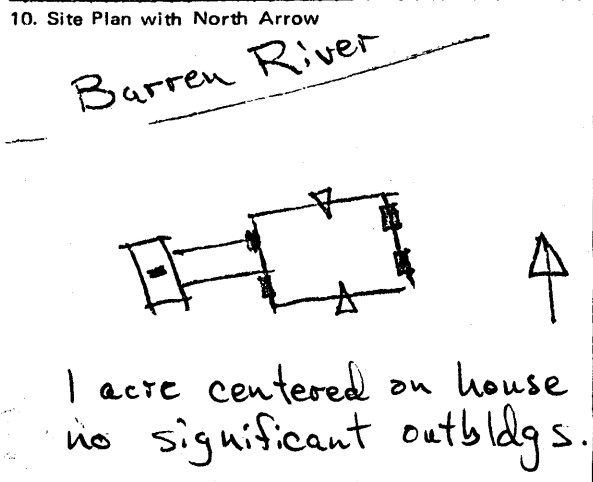 10. Site Plan with North Arrow
Barren River
1 acre centered on house
no significant outbldgs.